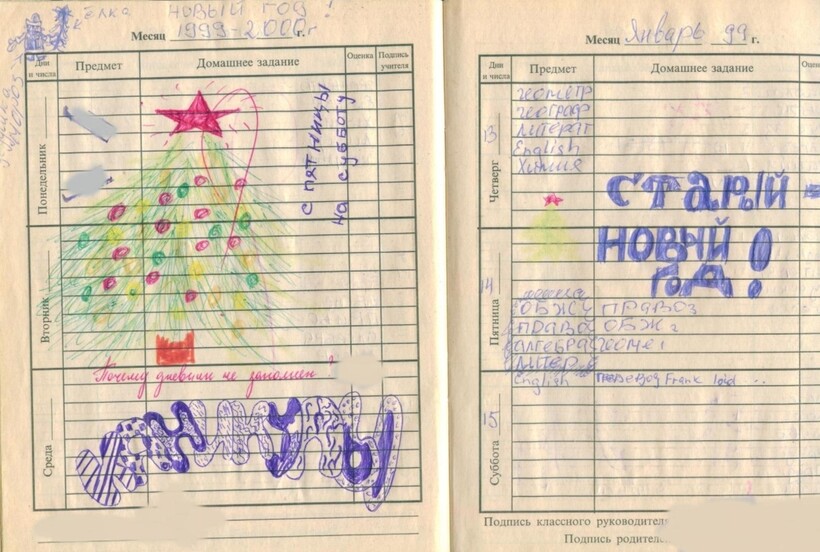 ёлка
НОВЫЙ ГОД!
Месяц 1999-2000 г.
Дни и числа
Предмет
Домашнее задание
Оценка
Подпись учителя
Понедельник
с пятницы
на субботу
Вторник
Почему дневник не заполнен?
Среда
КАНИКУЛЫ
Месяц Январь 99 г.
Дни и числа
Предмет
Домашнее задание
Оцен
13
Четверг
геометр
географ
литерат
English
Химия
СТАРЫЙ
НОВЫЙ
ГОД!
14
Пятница
ОБЖ
ПРАВО
ПРАВО
ОБЖ
алгебра
литер
English перевод Frank
15
Суббота
Подпись классного руководителя
Подпись родителе